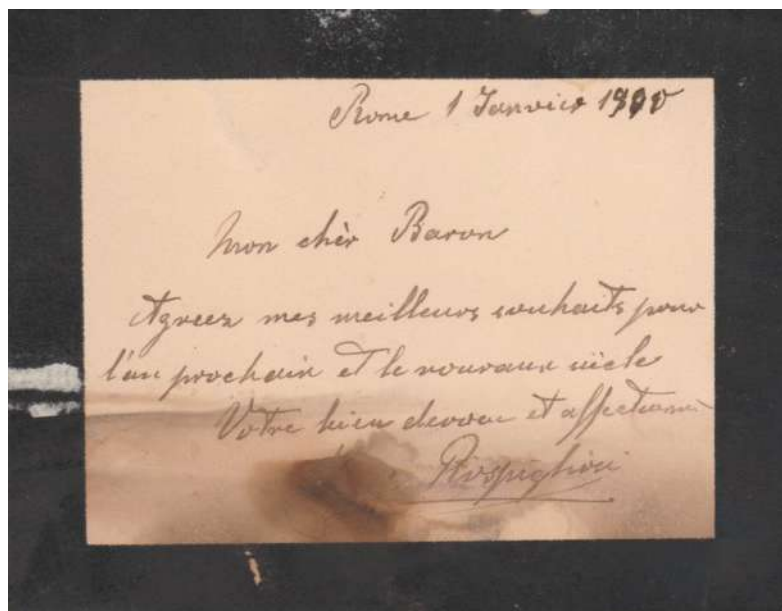 Rome 1 Janvier 1900
Mon chèr Baron
Agreez mes meilleurs souhaits pour
l'an prochain et le nouveaux siècle
Votre bien devoue et affectionné
Rospigliosi